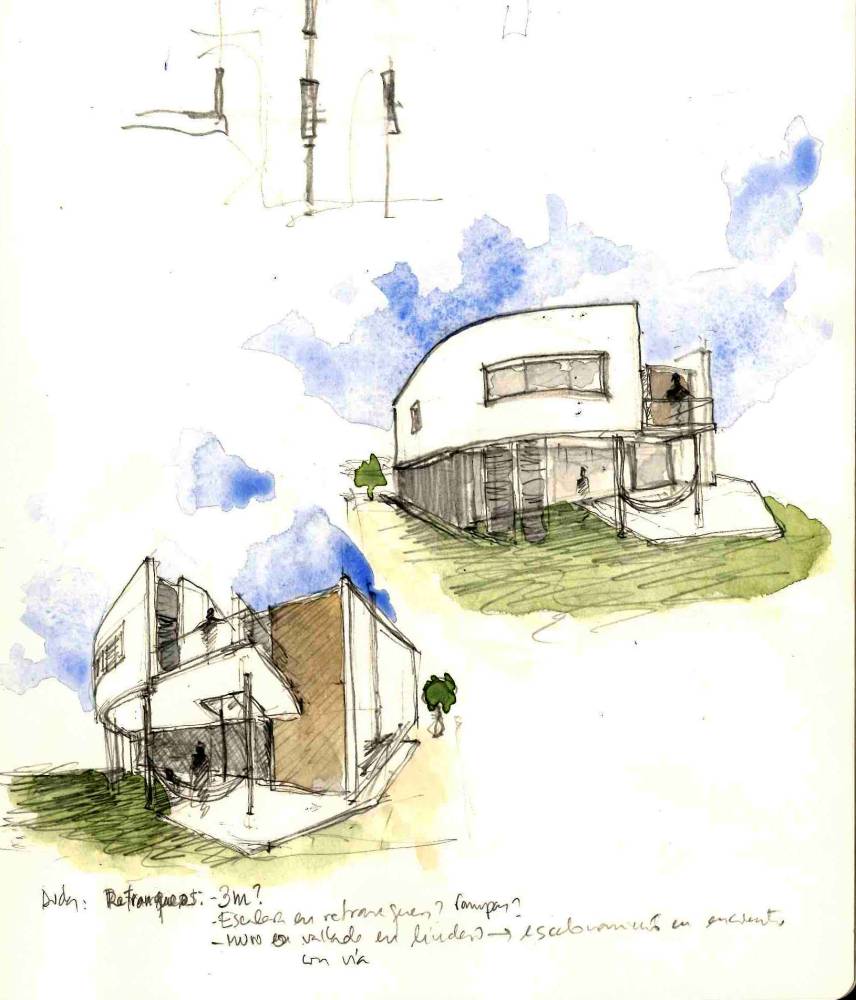 Dudas: Retranqueos: - 3m?
- Escalera en retranqueos? rampas?
- muro en vallado en lindero → en
con vía